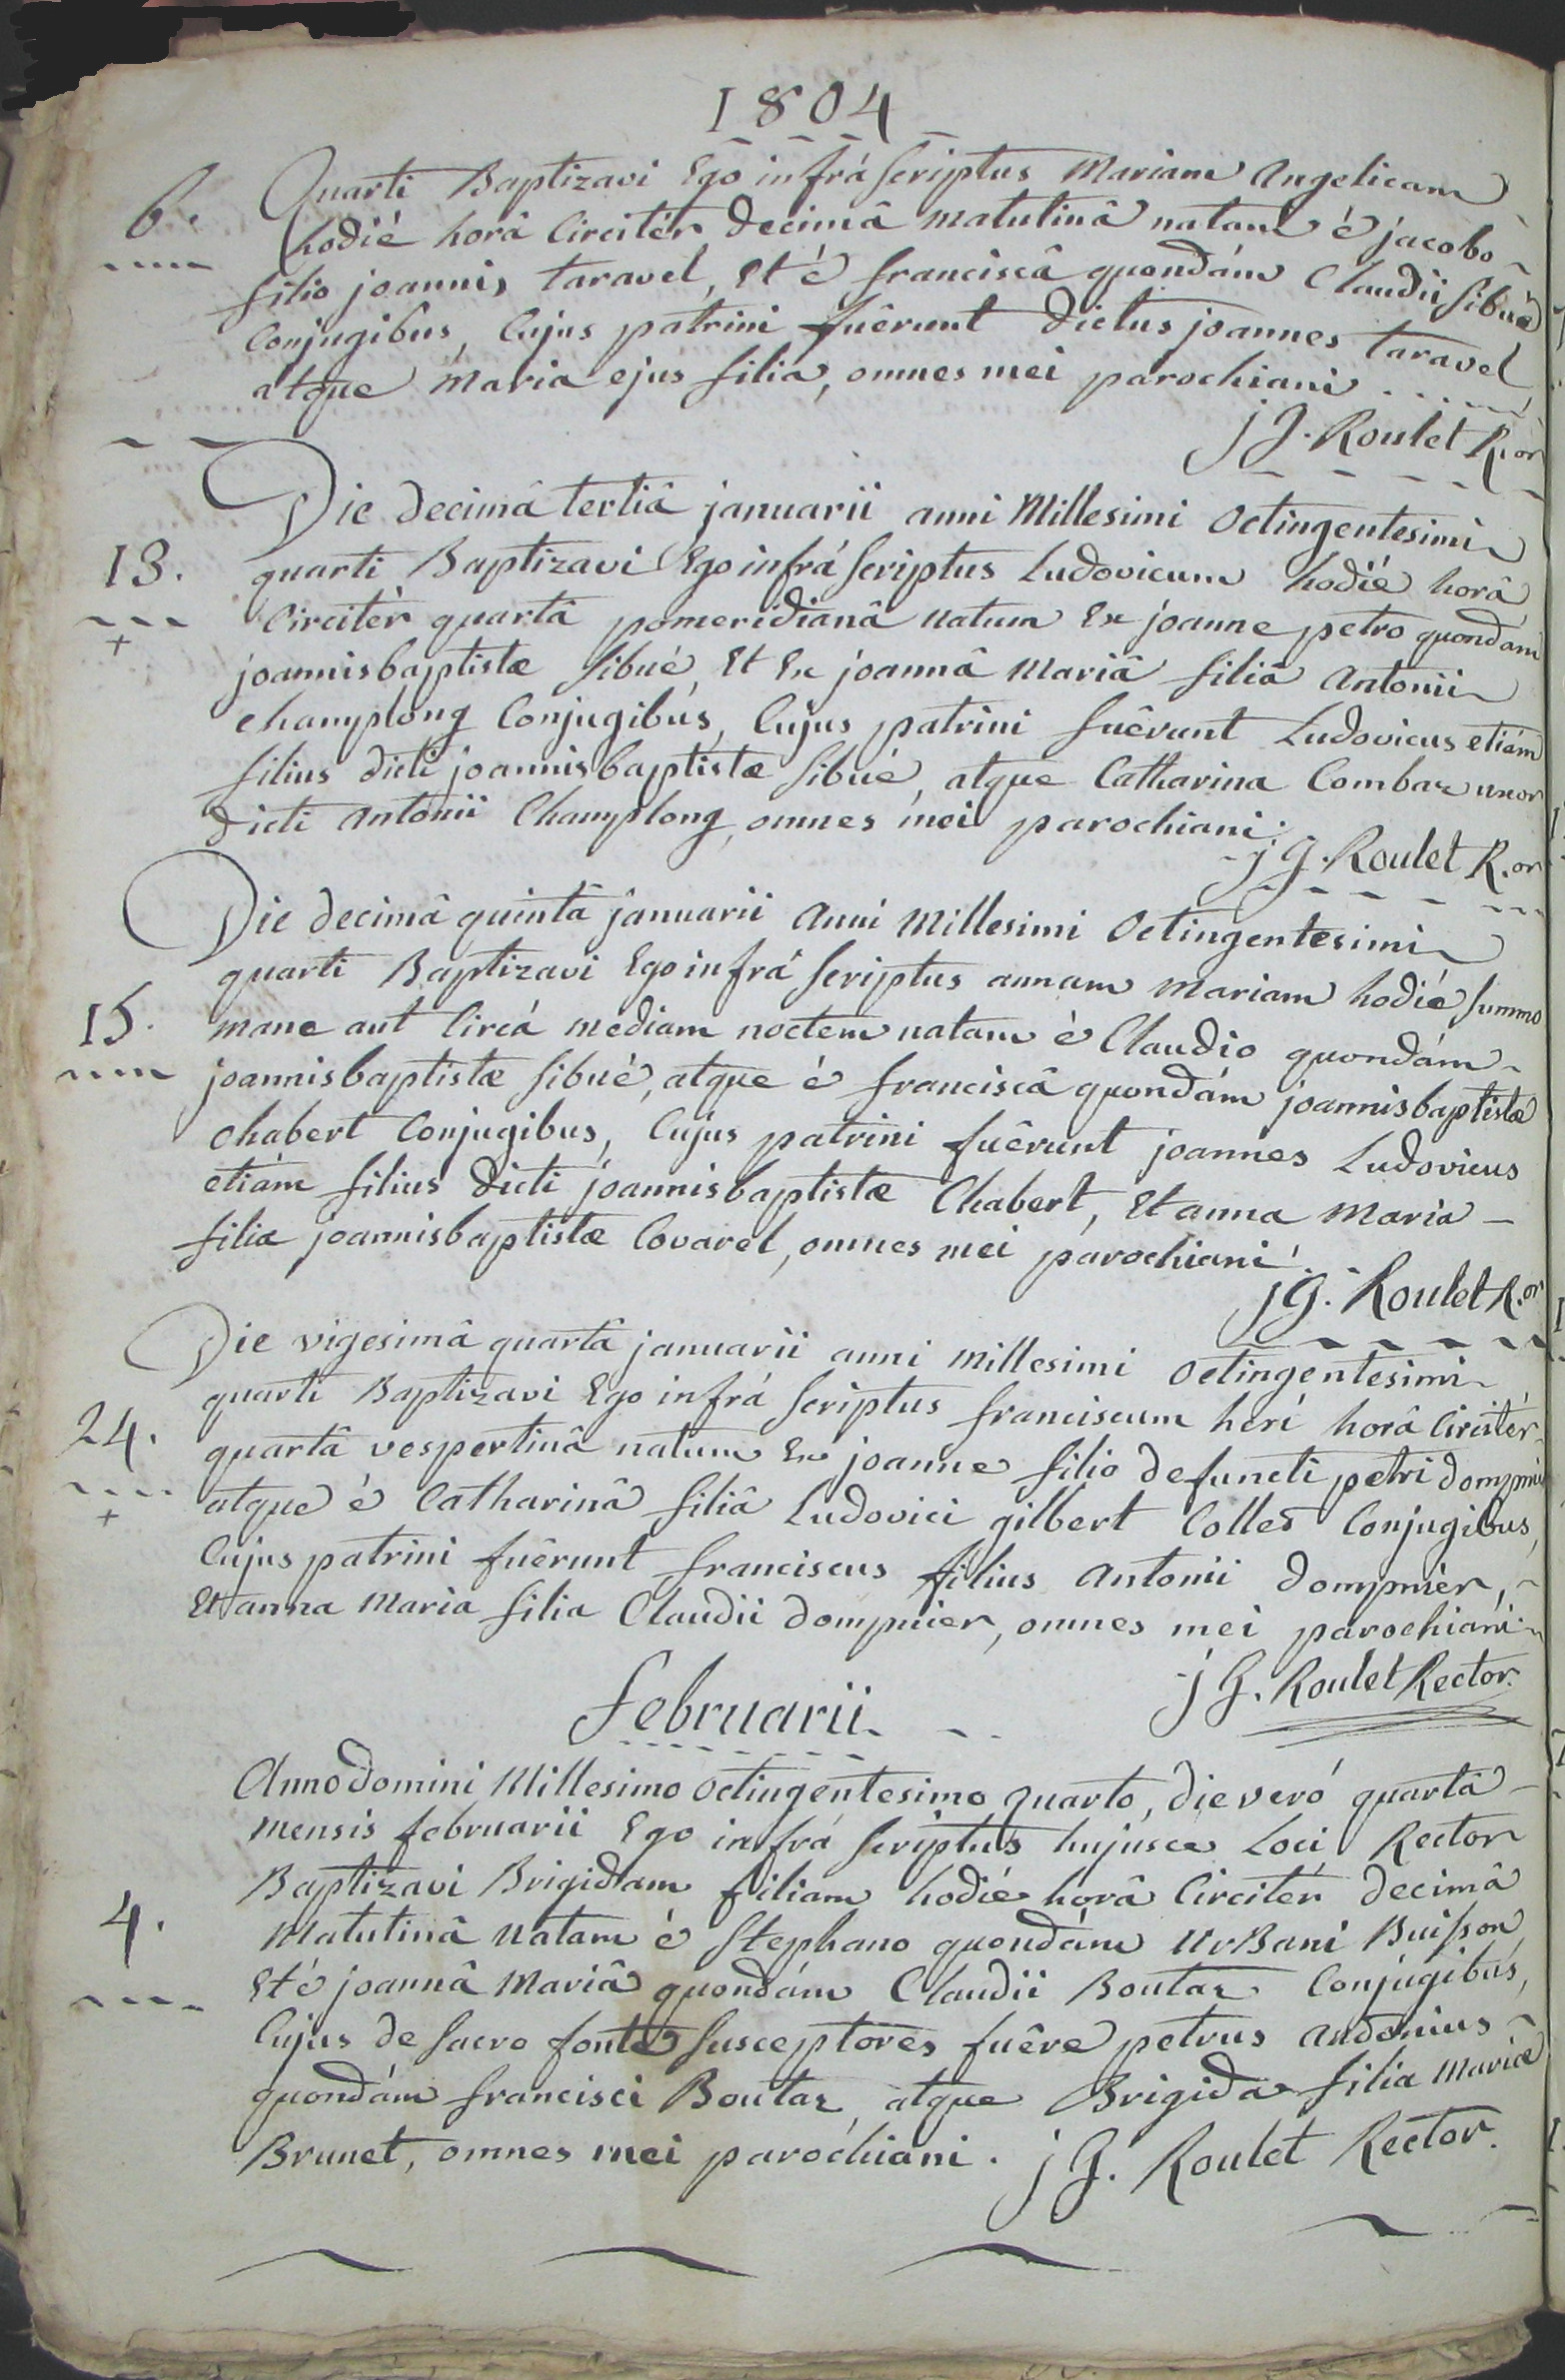 1804
6. Quarti Baptizavi Ego infrá scriptus Mariam Angelicam
hodié horâ circitér decimâ matutinâ natam é jacobo
filio joannis taravel, Et é franciscâ quondám Claudii sibué
Conjugibus, Cujus patrini fuêrunt dictus joannes taravel
atque Maria ejus filia, omnes mei parochiani
j G. Roulet R.or
Die decimâ tertiâ januarii anni Millesimi Octingentesimi
13. quarti Baptizavi Ego infrá scriptus Ludovicum hodié horâ
Circitér quartâ pomeridianâ natum Ex joanne petro quondam
joannisbaptistæ sibué, Et Ex joannâ Mariâ filiâ Antonii
champlong Conjugibús, Cujus patrini fuêrunt Ludovicus etiám
filius dicti joannisbaptistæ sibué, atque Catharina Combaz uxor
dicti Antonii Champlong, omnes mei parochiani.
j G. Roulet R.or
Die decimâ quintâ januarii Anni Millesimi Octingentesimi
quarti Baptizavi Ego infrá scriptus annam Mariam hodié summo
15. mane aut Circá mediam noctem natam é Claudio quondám
joannisbaptistæ sibué, atque é franciscâ quondám joannisbaptistæ
chabert Conjugibus, Cujus patrini fuêrunt joannes Ludovicus
etiám filius dicti joannisbaptistæ Chabert, Et anna Maria
filia joannisbaptistæ Covarel, omnes mei parochiani.
j G. Roulet R.or
Die vigesimâ quartâ januarii anni Millesimi Octingentesimi
quarti Baptizavi Ego infrá scriptus franciscum herí horâ Circitér
24. quartâ vespertinâ natum Ex joanne filio defuncti petri dompnier
atque é Catharinâ filiâ Ludovici gilbert Collet Conjugibus,
Cujus patrini fuêrunt franciscus filius Antonii dompnier,
Et anna Maria filia Claudii dompnier, omnes mei parochiani
j G. Roulet Rector.
februarii
Anno domini Millesimo Octingentesimo quarto, die veró quartâ
mensis februarii Ego infrá scriptus hujusce Loci Rector
Baptizavi Brigidam filiam hodié horâ Circitér decimâ
4. Matutinâ natam é Stephano quondám UrBani Buisson,
Et é joannâ Mariâ quondám Claudii Boutaz Conjugibús,
Cujus de sacro fonte susceptores fuêre petrus andonius
quondám francisci Boutaz, atque Brigida filia Mariæ
Brunet, omnes mei parochiani. j G. Roulet Rector.